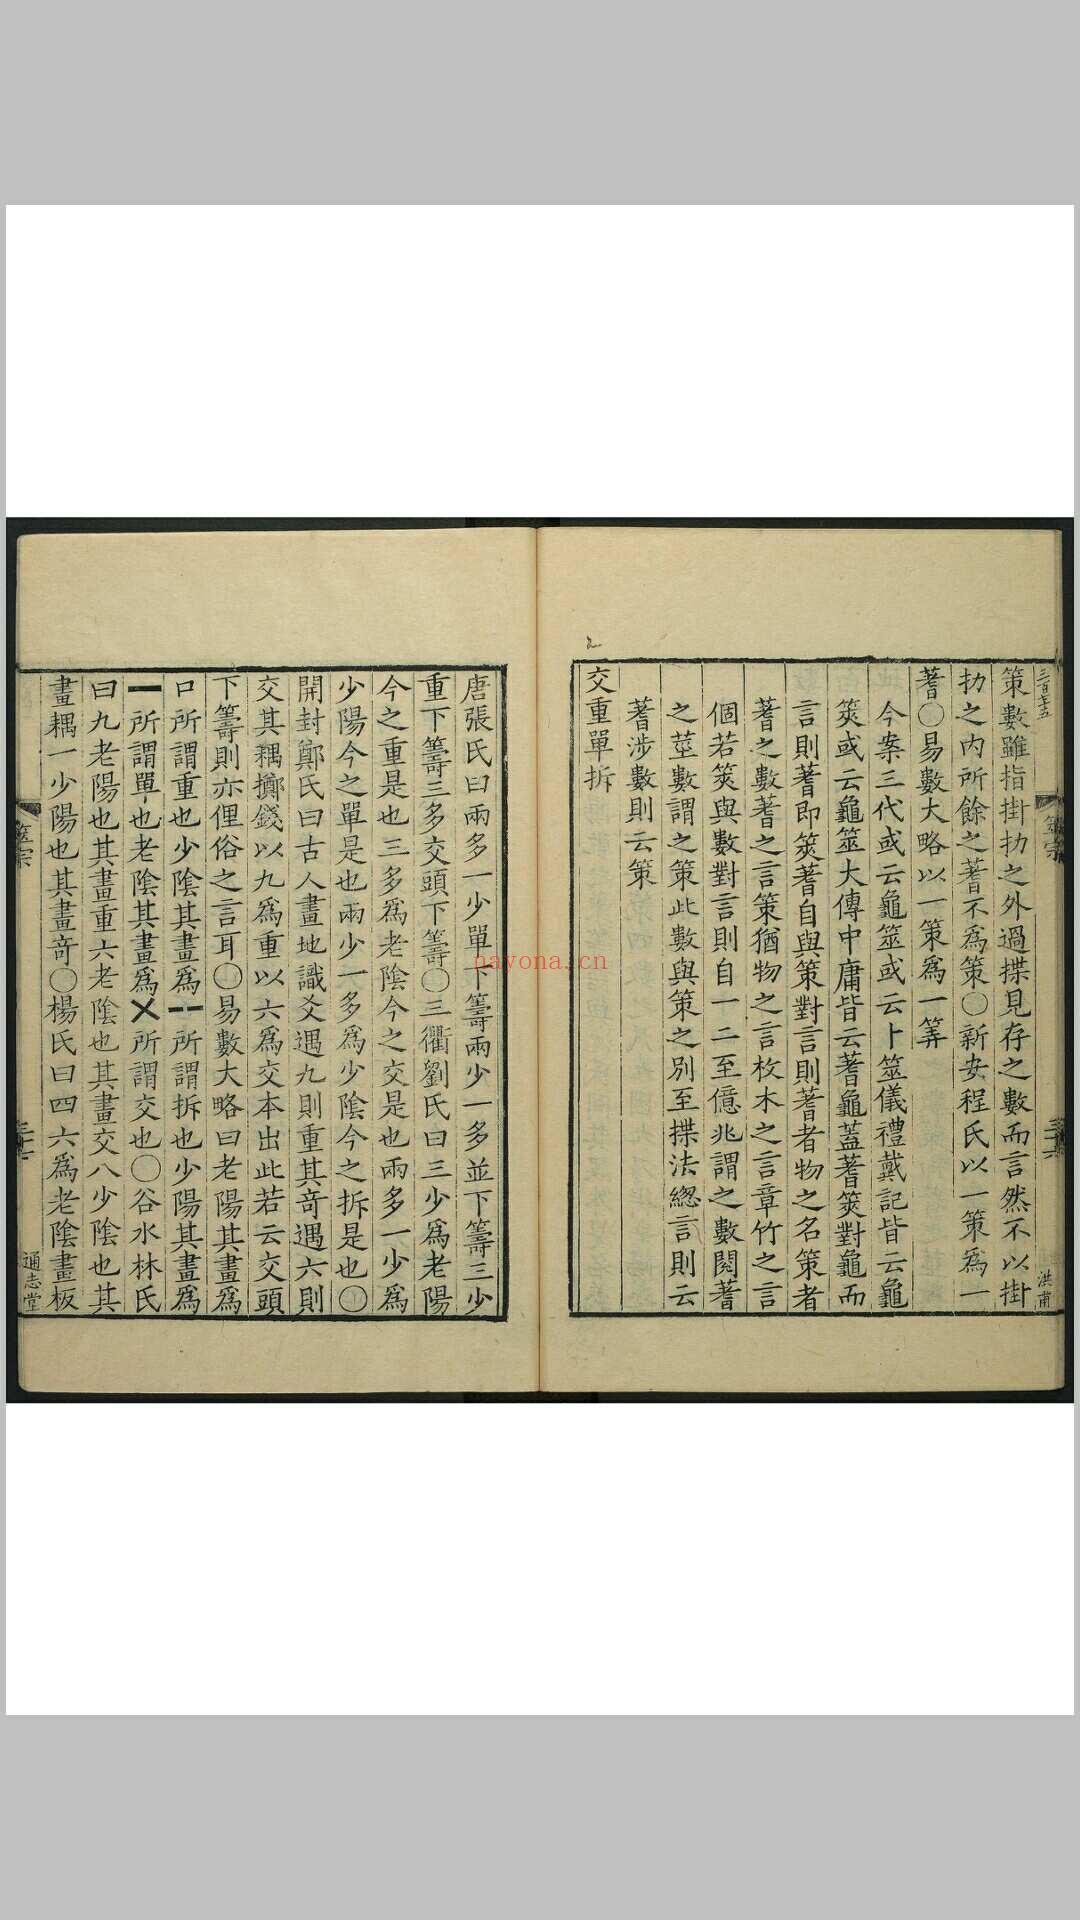 三百七十五
洪甫
筮宗
策數雖指掛扐之外過揲見存之數而言然不以掛
扐之内所餘之蓍不為策〇新安程氏以一策為一
蓍〇易數大略以一策為一筭
今案三代或云龜筮或云卜筮儀禮戴記皆云龜
筴或云龜筮大傳中庸皆云蓍龜蓋蓍筴對龜而
言則蓍即筴蓍自與策對言則蓍者物之名策者
蓍之數蓍之言策猶物之言枚木之言章竹之言
個若筴與數對言則自一二至億兆謂之數閱蓍
之莖數謂之策此數與策之別至揲法緫言則云
蓍涉數則云策
交重單拆
唐張氏曰兩多一少單下籌兩少一多並下籌三少
重下籌三多交頭下籌〇三衢劉氏曰三少為老陽
今之重是也三多為老陰今之交是也兩多一少為
少陽今之單是也兩少一多為少陰今之拆是也〇
開封鄭氏曰古人畫地識爻遇九則重其竒遇六則
交其耦擲錢以九為重以六為交本出此若云交頭
下籌則亦俚俗之言耳〇易數大略曰老陽其畫為
口所謂重也少陰其畫為--所謂拆也少陽其畫為
一所謂單也老陰其畫為乂所謂交也〇谷水林氏
曰九老陽也其畫重六老陰也其畫交八少陰也其
畫耦一少陽也其畫竒〇楊氏曰四六為老陰畫板
筮宗
通志堂
nayona.cn